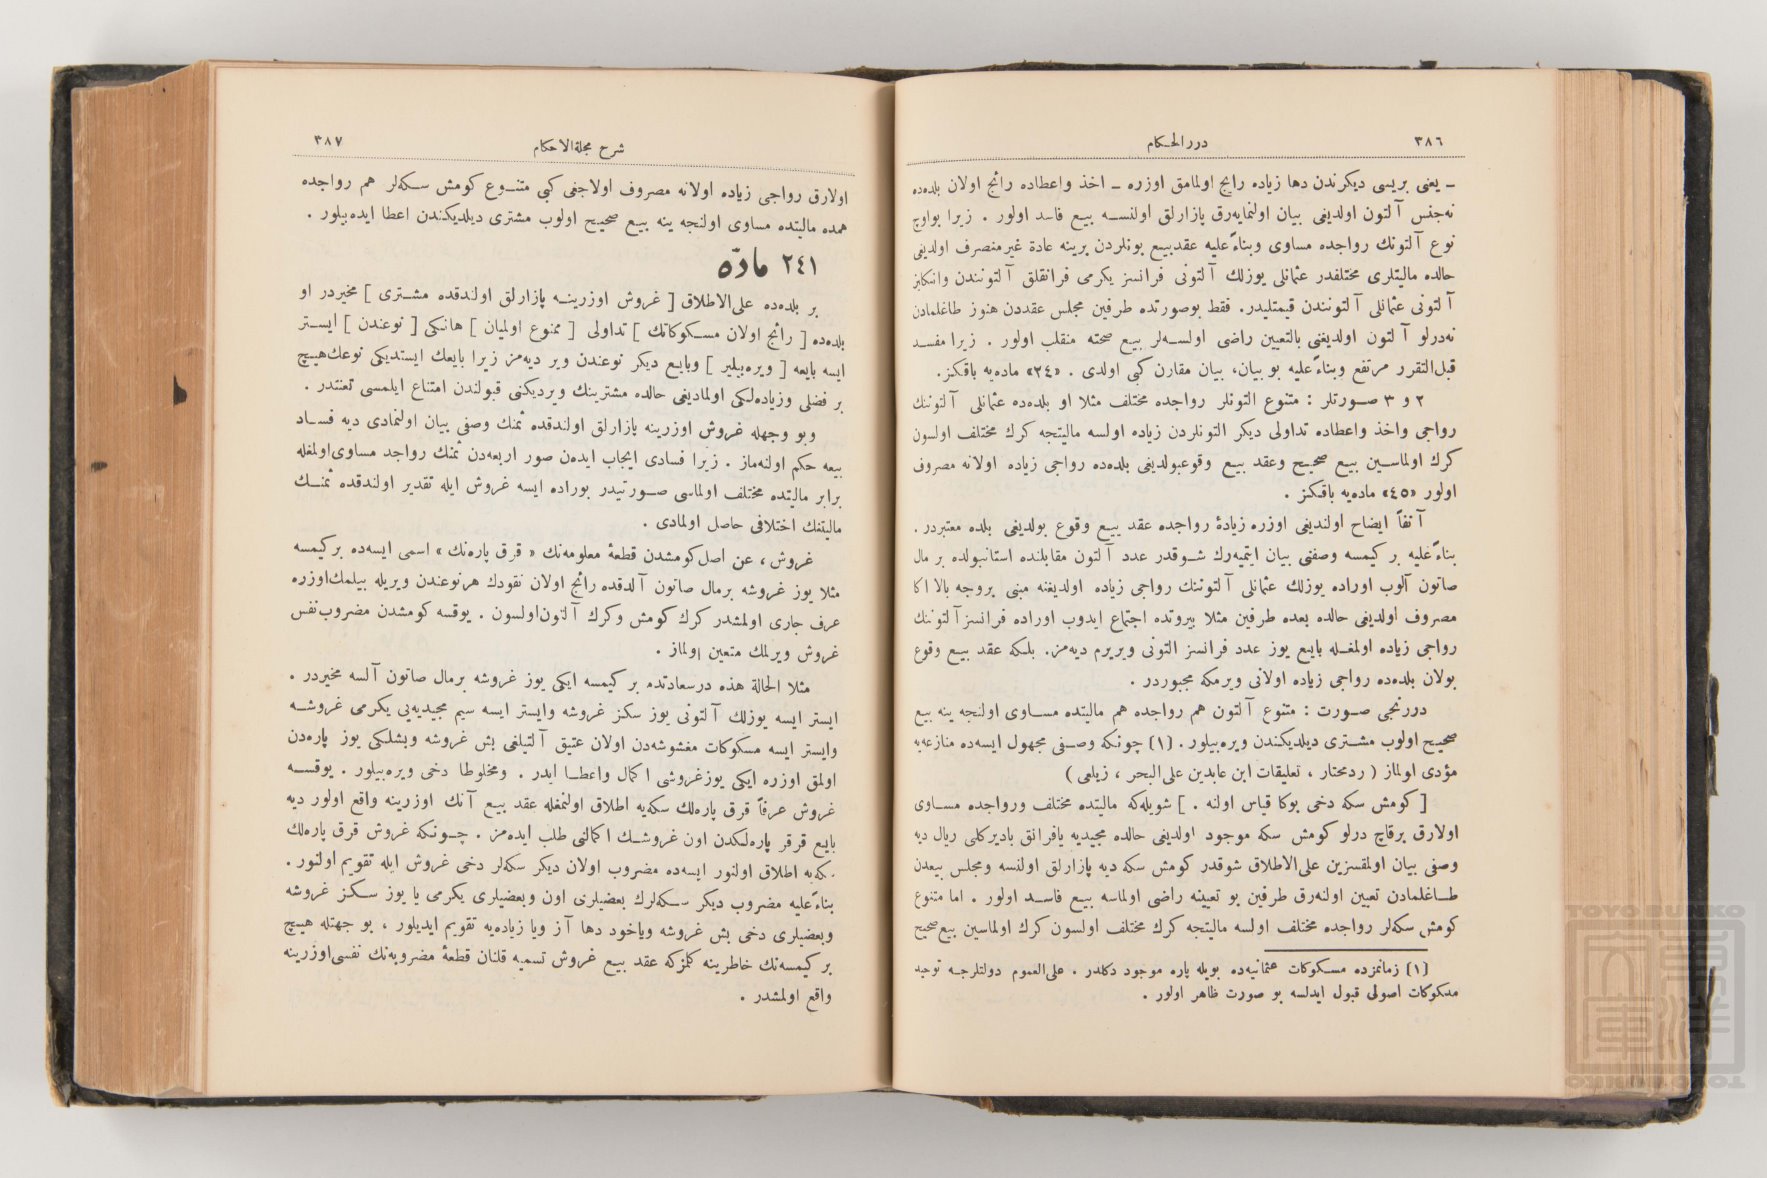 ٣٨٦
دررالحكام
ـ يعنى بريسى ديكرندن دها زياده رايج اولمامق اوزره ـ اخذ واعطاده رائج اولان بلده‌ده
نه‌جنس آلتون اولديغى بيان اولنمايه‌رق پازارلق اولنسه بيع فاسد اولور . زيرا بواوچ
نوع آلتونك رواجده مساوى وبناءً‌عليه عقدبيع بونلردن برينه عادة غيرمنصرف اولديغى
حالده ماليتلرى مختلفدر عثمانلى يوزلك آلتونى فرانسز يكرمى فرانقلق آلتونندن وانكليز
آلتونى عثمانلى آلتونندن قيمتليدر. فقط بوصورتده طرفين مجلس عقددن هنوز طاغلمادن
نه‌درلو آلتون اولديغنى بالتعيين راضى اولسه‌لر بيع صحته منقلب اولور . زيرا مفسد
قبل‌التقرر مرتفع وبناءً‌عليه بو بيان، بيان مقارن كبى اولدى . «٢٤» ماده‌يه باقكز.
٢ و ٣ صورتلر : متنوع التونلر رواجده مختلف مثلا او بلده‌ده عثمانلى آلتوننك
رواجى واخذ واعطاده تداولى ديكر التونلردن زياده اولسه ماليتجه كرك مختلف اولسون
كرك اولماسين بيع صحيح وعقد بيع وقوعبولديغى بلده‌ده رواجى زياده اولانه مصروف
اولور «٤٥» ماده‌يه باقكز .
آنفاً ايضاح اولنديغى اوزره زيادهٔ رواجده عقد بيع وقوع بولديغى بلده معتبردر .
بناءً‌عليه بر كيمسه وصفنى بيان ايتميه‌رك شوقدر عدد آلتون مقابلنده استانبولده بر مال
صاتون آلوب اوراده يوزلك عثمانلى آلتوننك رواجى زياده اولديغنه مبنى بروجه بالا اكا
مصروف اولديغى حالده بعده طرفين مثلا بيروتده اجتماع ايدوب اوراده فرانسز آلتوننك
رواجى زياده اولمغله بايع يوز عدد فرانسز التونى ويريرم ديه‌مز. بلكه عقد بيع وقوع
بولان بلده‌ده رواجى زياده اولانى ويرمكه مجبوردر .
دردنجى صورت : متنوع آلتون هم رواجده هم ماليتده مساوى اولنجه ينه بيع
صحيح اولوب مشترى ديلديكندن ويره‌بيلور . (١) چونكه وصفى مجهول ايسه‌ده منازعه‌يه
مؤدى اولماز ( ردمحتار ، تعليقات ابن عابدين على‌البحر ، زيلعى )
[ كومش سكه دخى بوكا قياس اولنه . ] شويله‌كه ماليتده مختلف ورواجده مساوى
اولارق برقاچ درلو كومش سكه موجود اولديغى حالده مجيديه يافرانق ياديركلى ريال ديه
وصفى بيان اولمقسزين على‌الاطلاق شوقدر كومش سكه ديه پازارلق اولنسه ومجلس بيعدن
طاغلمادن تعيين اولنه‌رق طرفين بو تعيينه راضى اولماسه بيع فاسد اولور . اما متنوع
كومش سكه‌لر رواجده مختلف اولسه ماليتجه كرك مختلف اولسون كرك اولماسين بيع صحيح
(١) زمانمزده مسكوكات عثمانيه‌ده بويله پاره موجود دكلدر . على‌العموم دولتلرجه توحيد
مسكوكات اصولى قبول ايدلسه بو صورت ظاهر اولور .
شرح مجلةالاحكام
٣٨٧
اولارق رواجى زياده اولانه مصروف اولاجغى كبى متنوع كومش سكه‌لر هم رواجده
همده ماليتده مساوى اولنجه ينه بيع صحيح اولوب مشترى ديلديكندن اعطا ايده‌بيلور .
٢٤١ مادّه
بر بلده‌ده على‌الاطلاق [ غروش اوزرينه پازارلق اولندقده مشترى ] مخيردر او
بلده‌ده [ رائج اولان مسكوكاتك ] تداولى [ ممنوع اولميان ] هانكى [ نوعندن ] ايستر
ايسه بايعه [ ويره‌بيلير ] وبايع ديكر نوعندن وير ديه‌مز زيرا بايعك ايستديكى نوعك‌هيچ
بر فضلى وزياده‌لكى اولماديغى حالده مشترينك ويرديكنى قبولندن امتناع ايلمسى تعنتدر .
وبو وجهله غروش اوزرينه پازارلق اولندقده ثمنك وصفى بيان اولنمادى ديه فساد
بيعه حكم اولنه‌ماز . زيرا فسادى ايجاب ايدن صور اربعه‌دن ثمنك رواجد مساوى‌اولمغله
برابر ماليتده مختلف اولماسى صورتيدر بوراده ايسه غروش ايله تقدير اولندقده ثمنك
ماليتنك اختلافى حاصل اولمادى .
غروش ، عن اصل كومشدن قطعهٔ معلومه‌نك « قرق پاره‌نك » اسمى ايسه‌ده بركيمسه
مثلا يوز غروشه برمال صاتون آلدقده رائج اولان نقودك هرنوعندن ويريله بيلمك‌اوزره
عرف جارى اولمشدر كرك كومش وكرك آلتون‌اولسون . يوقسه كومشدن مضروب‌نفس
غروش ويرلمك متعين اولماز .
مثلا الحالة هذه درسعادتده بر كيمسه ايكى يوز غروشه برمال صاتون آلسه مخيردر .
ايستر ايسه يوزلك آلتونى يوز سكز غروشه وايستر ايسه سيم مجيديه‌يى يكرمى غروشه
وايستر ايسه مسكوكات مغشوشه‌دن اولان عتيق آلتيلغى بش غروشه وبشلكى يوز پاره‌دن
اولمق اوزره ايكى يوزغروشى اكمال واعطا ايدر . ومخلوطا دخى ويره‌بيلور . يوقسه
غروش عرفاً قرق پاره‌لك سكه‌يه اطلاق اولنمغله عقد بيع آنك اوزرينه واقع اولور ديه
بايع قرقر پاره‌لكدن اون غروشك اكمالنى طلب ايده‌مز . چونكه غروش قرق پاره‌لك
سكه‌يه اطلاق اولنور ايسه‌ده مضروب اولان ديكر سكه‌لر دخى غروش ايله تقويم اولنور .
بناءً‌عليه مضروب ديكر سكه‌لرك بعضيلرى اون وبعضيلرى يكرمى يا يوز سكز غروشه
وبعضيلرى دخى بش غروشه وياخود دها آز ويا زياده‌يه تقويم ايديلور ، بو جهتله هيچ
بر كيمسه‌نك خاطرينه كلمزكه عقد بيع غروش تسميه قلنان قطعهٔ مضروبه‌نك نفسى‌اوزرينه
واقع اولمشدر .
TOYO BUNKO